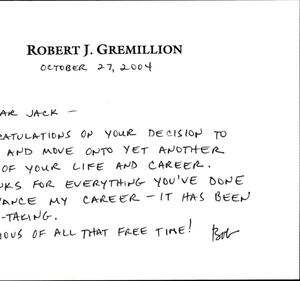 ROBERT J. GREMILLION
OCTOBER 27, 2004
AR JACK –
ATULATIONS ON YOUR DECISION TO
AND MOVE ONTO YET ANOTHER
OF YOUR LIFE AND CAREER.
KS FOR EVERYTHING YOU'VE DONE
ANCE MY CAREER – IT HAS BEEN
-TAKING.
OUS OF ALL THAT FREE TIME! Bob